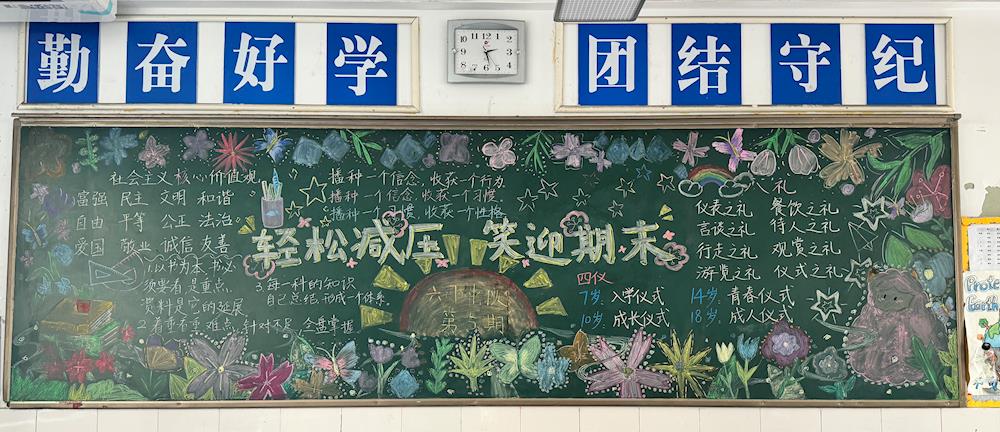 勤奋好学
团结守纪
社会主义核心价值观
富强 民主 文明 和谐
自由 平等 公正 法治
爱国 敬业 诚信 友善
播种一个信念 收获一个行为
播种一个信念 收获一个习惯
播种一个习惯 收获一个性格
八礼
仪表之礼 餐饮之礼
言谈之礼 待人之礼
行走之礼 观赏之礼
游览之礼 仪式之礼
轻松减压 笑迎期末
1.以书为本 书必
须要看是重点
资料是它的延展
2.看重不重难点 针对不足 全盘掌握
3.每一科的知识
自己总结 形成一个体系
第 期
四仪
7岁:入学仪式 14岁:青春仪式
10岁:成长仪式 18岁:成人仪式
Prote
Earth